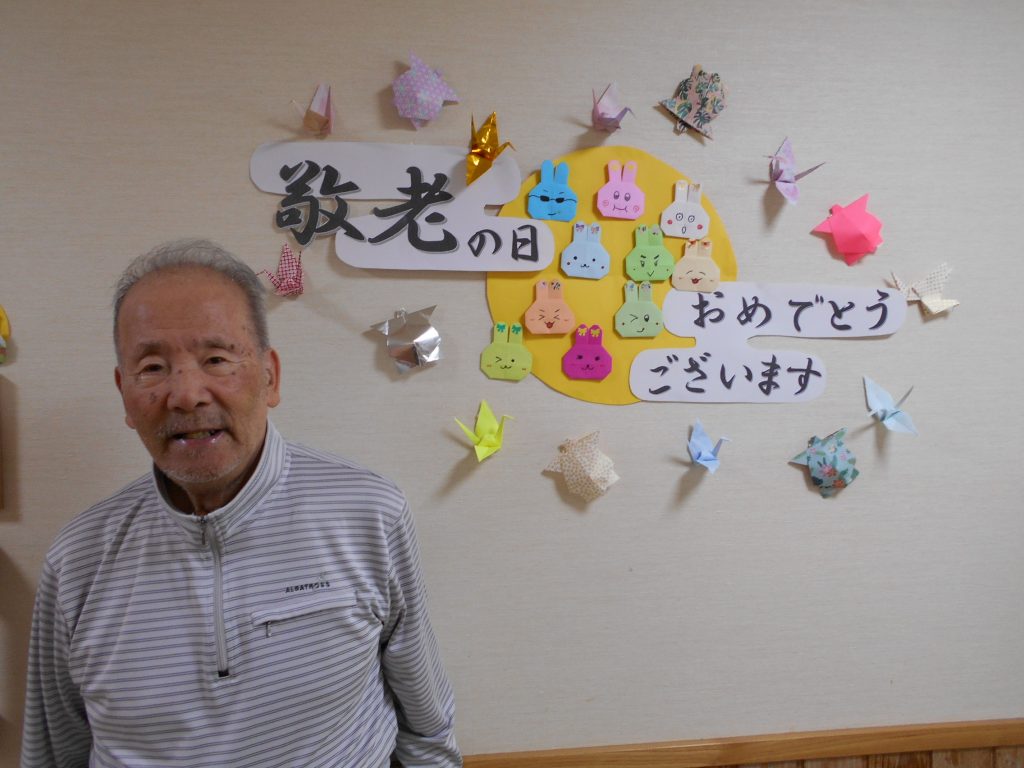 敬老の日
おめでとう
ございます
ALBATROSS